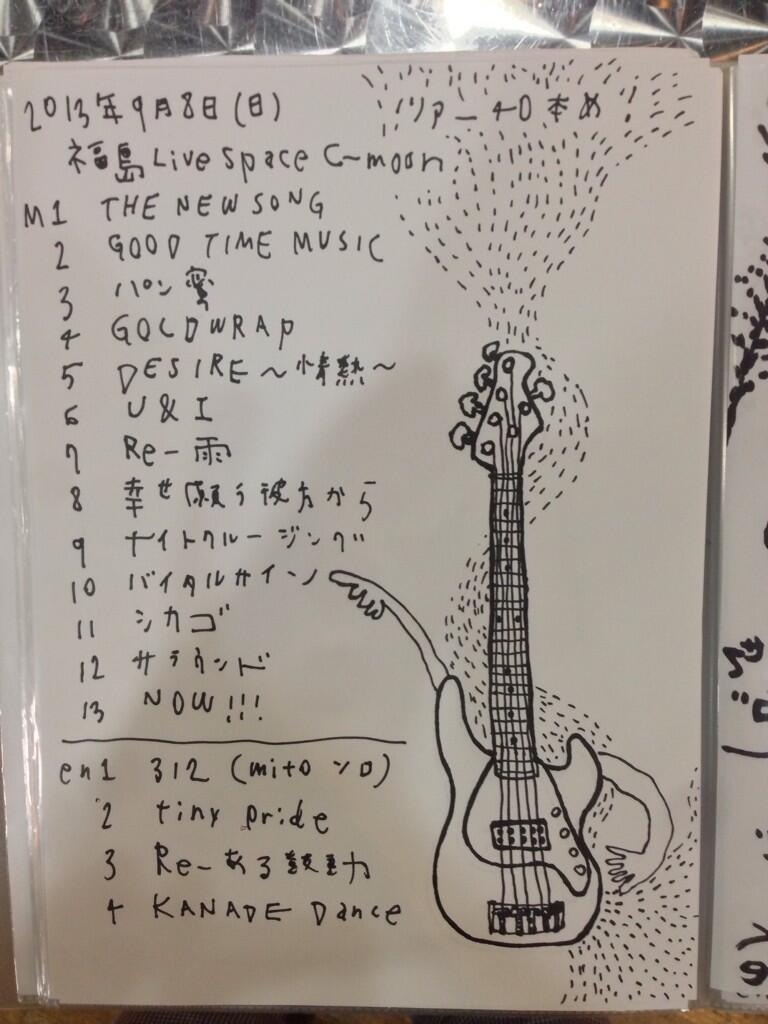 2013年9月8日(日) ツアー40本め!
福島 Live Space C-moon
M1 THE NEW SONG
2 GOOD TIME MUSIC
3 パン蜜
4 GOLDWRAP
5 DESIRE～情熱～
6 U & I
7 Re-雨
8 幸せ願う彼方から
9 ナイトクルージング
10 バイタルサイン
11 シカゴ
12 サラウンド
13 NOW!!!
en1 312 (mito ソロ)
2 tiny pride
3 Re-ある鼓動
4 KANADE Dance